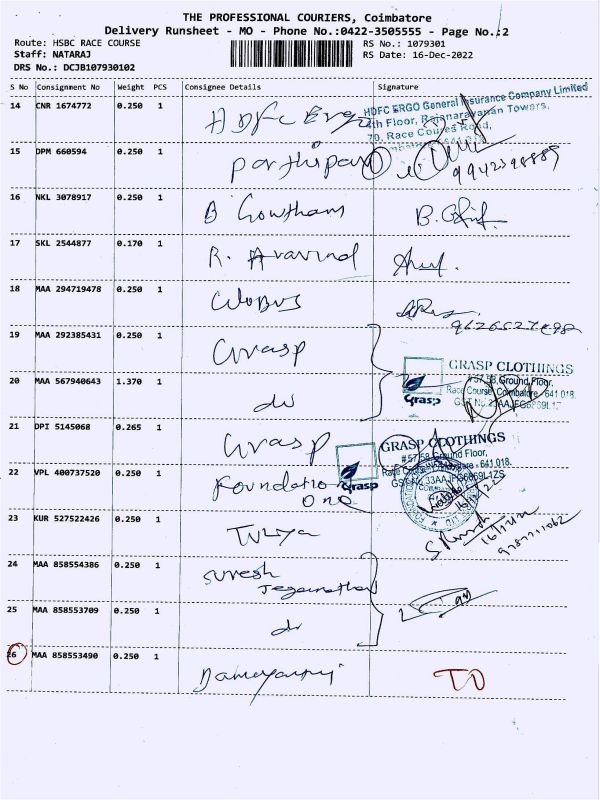 THE PROFESSIONAL COURIERS, Coimbatore
Delivery Runsheet - MO - Phone No.:0422-3505555 - Page No.:2
Route: HSBC RACE COURSE
RS No.: 1079301
Staff: NATARAJ
RS Date: 16-Dec-2022
DRS No.: DCJB107930102
S No Consignment No Weight PCS Consignee Details Signature
14 CNR 1674772 0.250 1 HDFC Ergo
HDFC ERGO General Insurance Company Limited
4th Floor, Rajanarayanan Towers,
70, Race Course Road,
15 DPM 660594 0.250 1 Parthipan
16 NKL 3078917 0.250 1 B Gowtham
17 SKL 2544877 0.170 1 R. Aravind
18 MAA 294719478 0.250 1 Globus
19 MAA 292385431 0.250 1 Grasp
GRASP CLOTHINGS
#57,58, Ground Floor,
Race Course, Coimbatore - 641 018.
Grasp
20 MAA 567940643 1.370 1 do
21 DPI 5145068 0.265 1 Grasp
GRASP CLOTHINGS
#57,58, Ground Floor,
Race Course, Coimbatore - 641 018.
Grasp
22 VPL 400737520 0.250 1 Foundation
One
23 KUR 527522426 0.250 1
24 MAA 858554386 0.250 1 Suresh
Jeganathan
25 MAA 858553709 0.250 1 do
26 MAA 858553490 0.250 1 Damayanthi
TD